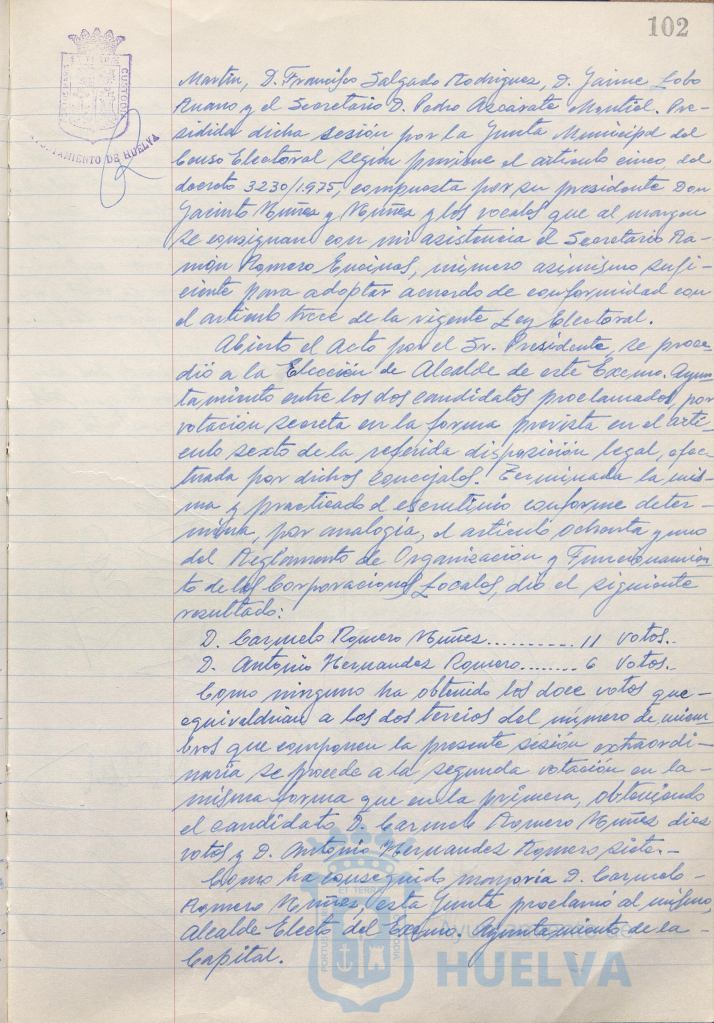 102
PORTUS MARIS
ET TERRAE
CUSTODIA
AYUNTAMIENTO DE HUELVA
Martin, D. Francisco Salgado Rodriguez, D. Jaime Lobo
Ruano y el Secretario D. Pedro Azcárate Montiel. Pre-
sidida dicha sesión por la Junta Municipal del
Censo Electoral según previene el articulo cinco del
decreto 3230/1.975, compuesta por su presidente Don
Jacinto Núñez y Núñez y los vocales que al margen
se consignan con mi asistencia el Secretario Ra-
món Romero Encinas, número asimismo sufi-
ciente para adoptar acuerdo de conformidad con
el articulo trece de la vigente Ley Electoral.
Abierto el Acto por el Sr. Presidente, se proce-
dió a la Elección de Alcalde de este Excmo. Ayun-
tamiento entre los dos candidatos proclamados por
votación secreta en la forma prevista en el artí-
culo sexto de la referida disposición legal, efec-
tuada por dichos concejales. Terminada la mis-
ma y practicado el escrutinio conforme deter-
mina, por analogía, el articulo ochenta y uno
del Reglamento de Organización y Funcionamien-
to de las Corporaciones Locales, dio el siguiente
resultado:
D. Carmelo Romero Núñez........... 11 votos..
D. Antonio Hernandez Romero........ 6 votos.-
Como ninguno ha obtenido los doce votos que-
equivaldrian a los dos tercios del número de miem-
bros que componen la presente sesión extraordi-
naria se procede a la segunda votación en la-
misma forma que en la primera, obteniendo
el candidato D. Carmelo Romero Núñez diez
votos y D. Antonio Hernandez Romero siete.-
Como ha conseguido mayoría D. Carmelo-
Romero Núñez, esta Junta proclamó al mismo,
Alcalde Electo del Excmo. Ayuntamiento de la-
Capital.
ET TERRAE
PORTUS
CUSTODIA
HUELVA